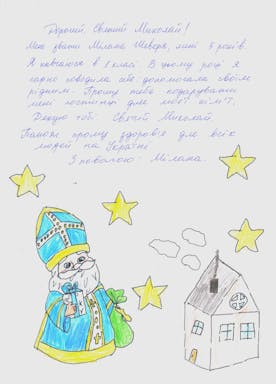 Дорогий, Святий Миколай!
Мене звати Мілана Шевера, мені 8 років.
Я навчаюся в 3 класі. В цьому році я
гарно поводила себе, допомагала своїм
рідним. Прошу тебе подарувати
мені гостинці для моєї сім'ї.
Дякую тобі Святий Миколай.
Також прошу здоров'я для всіх
людей на Україні.
З повагою Мілана.